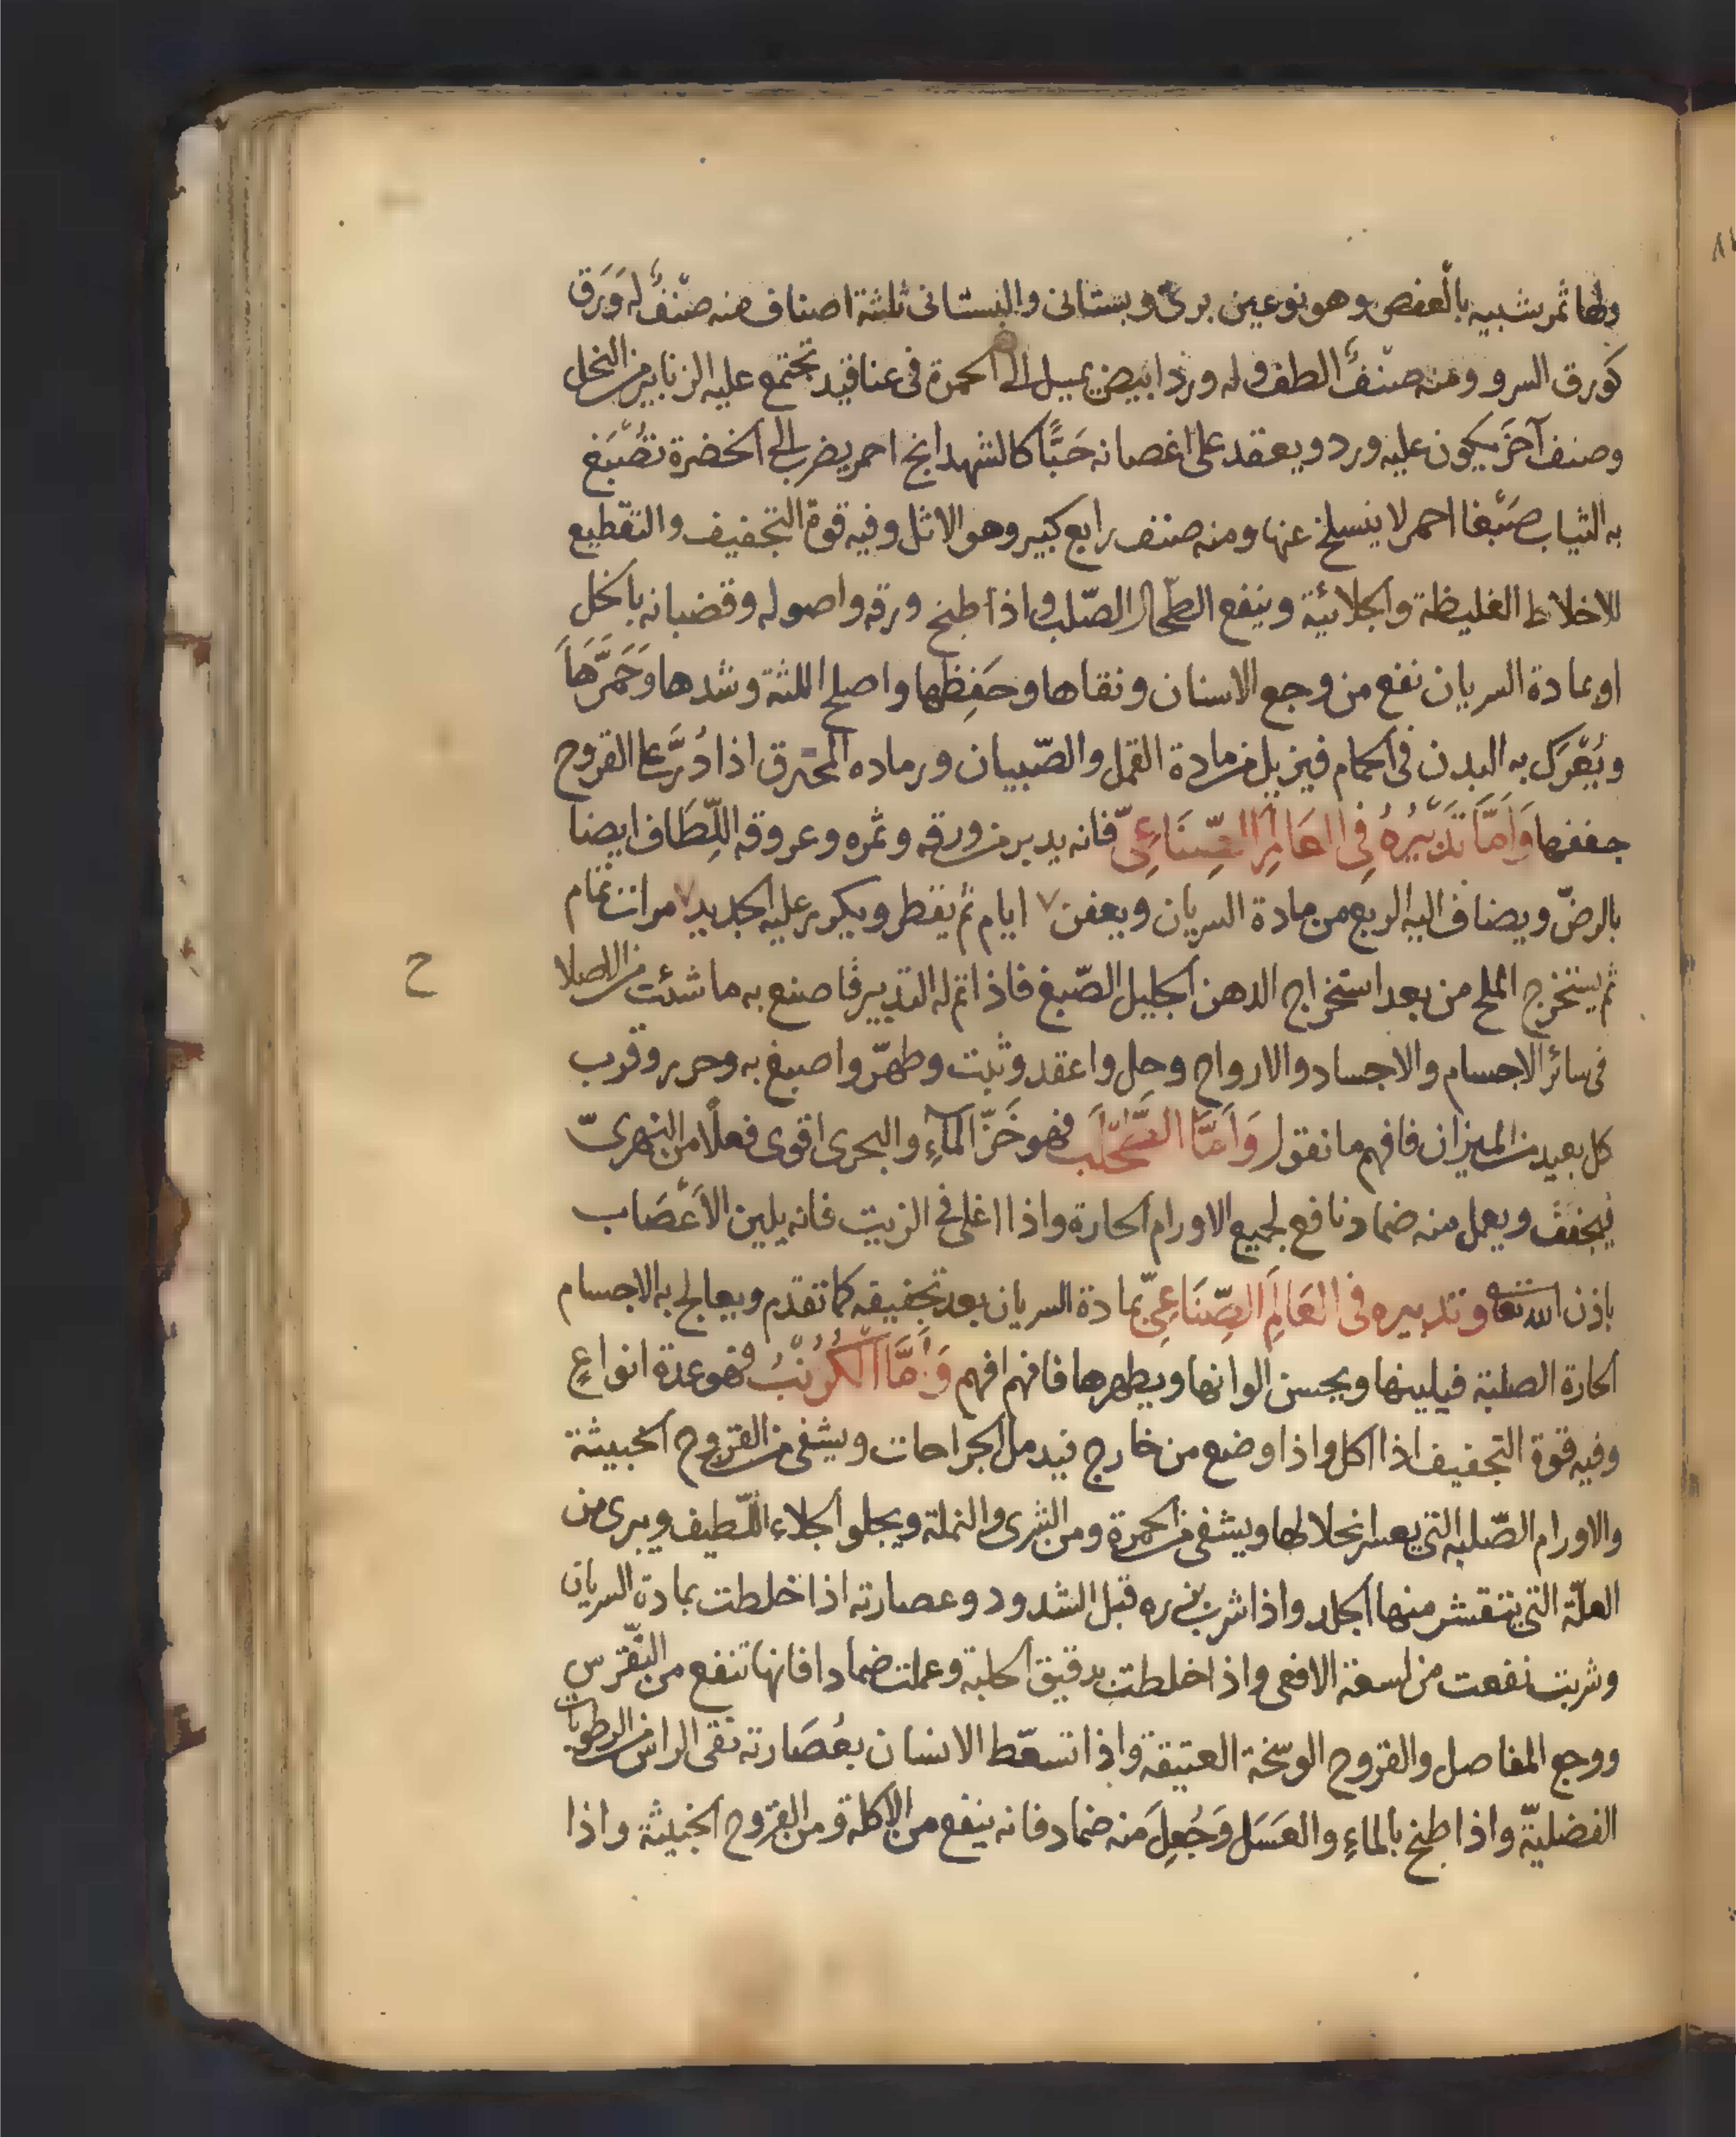 ولها ثمر شبيه بالعفص وهو نوعين بريّ وبستانى والبستانى ثلثة اصناف منه صنْفٌ له وَرَق
كَورق السرو ومنه صنْفٌ الطف وله ورد ابيض يميل الى الحمرة فى عناقيد تجتمع عليه الزنابير من النحل
وصنف آخَر يكون عليه ورد ويعقد على اغصانه حَبًّا كالشهدانج احمر يضرب الى الخضرة تصْبَغ
به الثياب صَبْغا احمر لا ينسلخ عنها ومنه صنف رابع كبير وهو الاثل وفيه قوة التجفيف والتقطيع
للاخلاط الغليظة والجلائية وينفع الطحال الصّلب واذا طبخ ورقه واصوله وقضبانه بالخل
او بمادة السريان نفع من وجع الاسنان ونقاها وحَفِظها واصلح اللثة وشدها وَحَمَّرَهَا
ويُعْرَك به البدن فى الحمام فيزيل من مادة القمل والصّيبان ورماده المحترق اذا دُرَّ على القروح
جففها وَاَمَّا تَدْبيرُهُ فِى العَالَمِ الصِّنَاعِىّ فانه يدبر من ورقه وثمره وعروقه اللِّطَاف ايضا
بالرضّ ويضاف اليه الربع من مادة السريان ويعفن ٧ ايام ثم يقطر ويكرر عليه الجديد ٧ مرات تمام
ثم يستخرج الملح من بعد استخراج الدهن الجليل الصّبغ فاذا تم له التدبير فاصنع به ما شئت من الاصلا
ح
فى سائر الاجسام والاجساد والارواح وحل واعقد وثبت وطهّر واصبغ به وحرر وقرب
كل بعيد من الميزان فافهم ما نقول وَاَمَّا الطّحْلَب فهو خَزّ المآءِ والبحرى اقوى فعلًا من النهرىّ
يجفف ويعمل منه ضماد نافع لجميع الاورام الحارة واذا اغلى فى الزيت فانه يلين الاَعْصَاب
باذن الله تعا وتدبيره فى العَالَمِ الصِّنَاعِىّ بمادة السريان بعد تجفيفه كما تقدم ويعالج به الاجسام
الحارة الصلبة فيلينها ويحسن الوانها ويطهرها فافهم افهم وَأَمَّا الكُرُنْبُ فهو عدة انواعٍ
وفيه قوة التجفيف اذا اكل واذا وضع من خارج فيدمل الجراحات ويشفى من القروح الخبيثة
والاورام الصّلبه التى يعسر انحلالها ويشفى من الحمرة ومن الشرى والنملة ويجلو الجلاء اللّطيف ويبرى من
العلّة التى يتقشر منها الجلد واذا شرب بزره قبل الشدود وعصارته اذا خلطت بمادة السريان
وشربت نفعت من لسعة الافعى واذا خلطت بدقيق الحلبة وعملت ضمادا فانها تنفع من النّقرس
ووجع المفاصل والقروح الوسخة العتيقة واذا تسعّط الانسان بعُصَارته نقى الراس من الرطوبات
الفضليّة واذا طبخ بالماءِ والعَسَل وَجُعِلَ منه ضماد فانه ينفع من الاكلة ومن القروح الخبيثة واذا